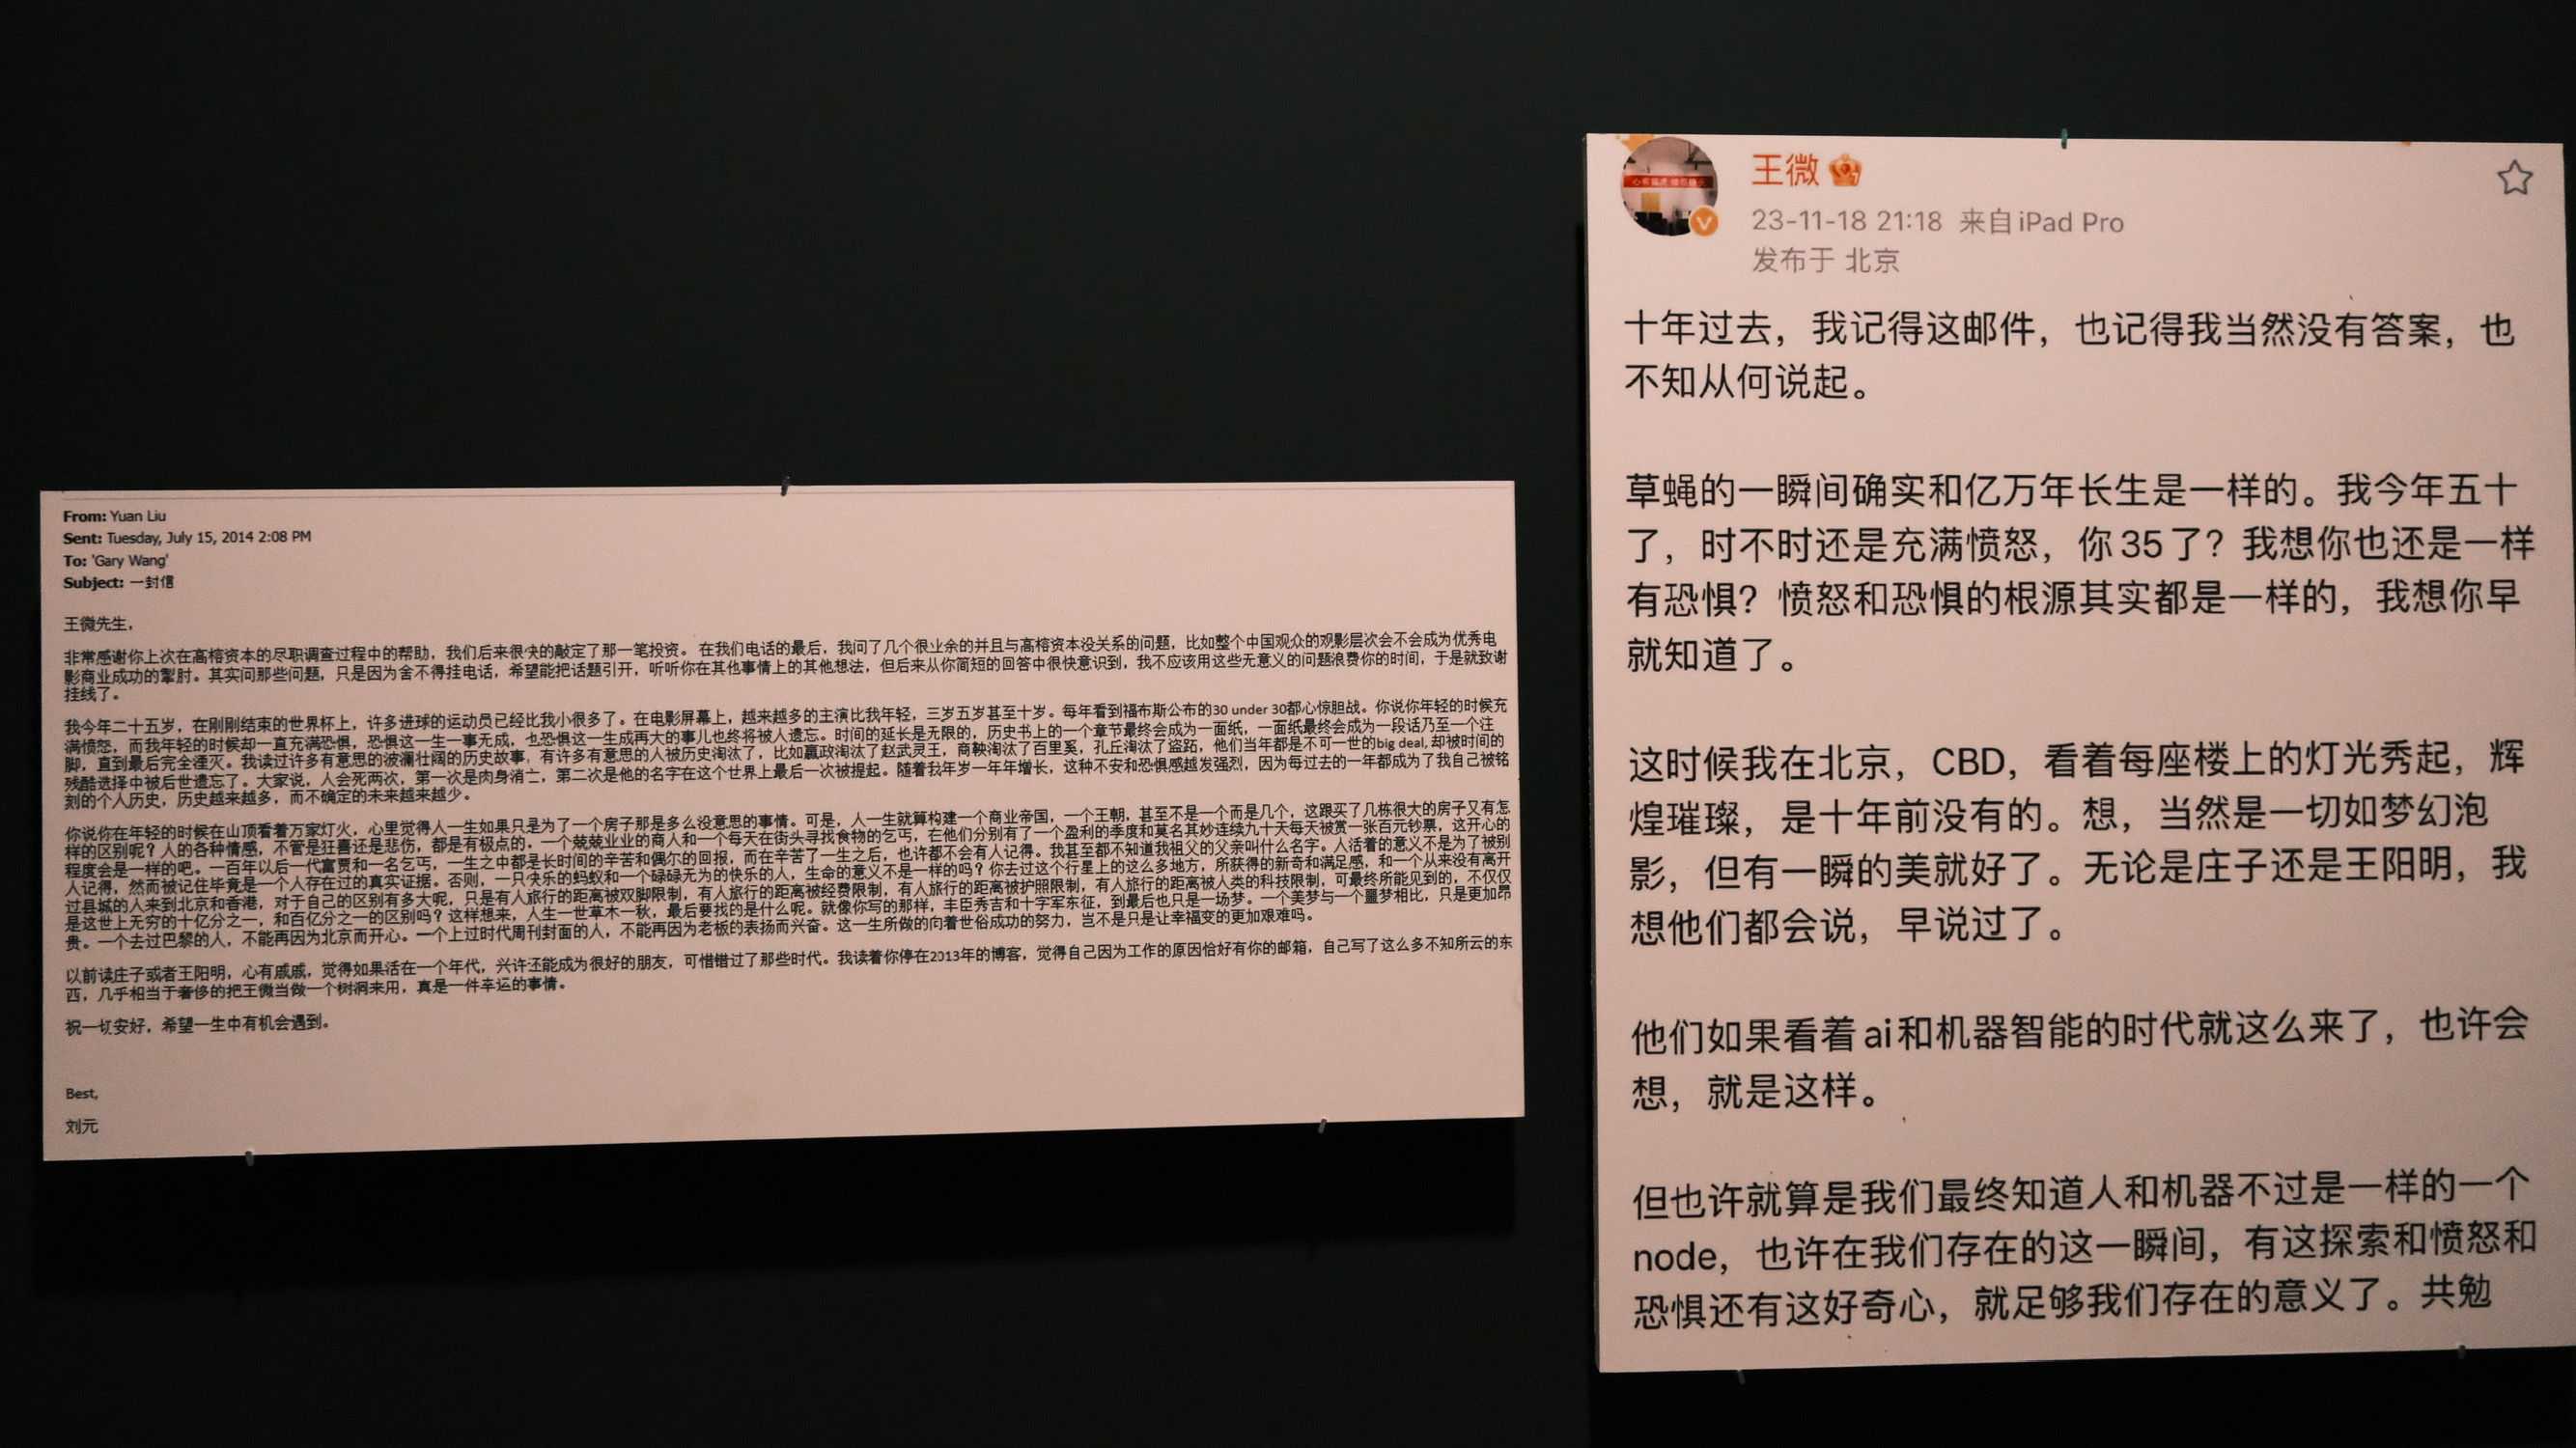 From: Yuan Liu
Sent: Tuesday, July 15, 2014 2:08 PM
To: 'Gary Wang'
Subject: 一封信
王微先生,
非常感谢你上次在高榕资本的尽职调查过程中的帮助，我们后来很快的敲定了那一笔投资。在我们电话的最后，我问了几个很业余的并且与高榕资本没关系的问题，比如整个中国观众的观影层次会不会成为优秀电
影商业成功的掣肘。其实问那些问题，只是因为舍不得挂电话，希望能把话题引开，听听你在其他事情上的其他想法，但后来从你简短的回答中很快意识到，我不应该用这些无意义的问题浪费你的时间，于是就致谢
挂线了。
我今年二十五岁，在刚刚结束的世界杯上，许多进球的运动员已经比我小很多了。在电影屏幕上，越来越多的主演比我年轻，三岁五岁甚至十岁。每年看到福布斯公布的30 under 30都心惊胆战。你说你年轻的时候充
满愤怒，而我年轻的时候却一直充满恐惧，恐惧这一生一事无成，也恐惧这一生成再大的事儿也终将被人遗忘。时间的延长是无限的，历史书上的一个章节最终会成为一面纸，一面纸最终会成为一段话乃至一个注
脚，直到最后完全湮灭。我读过许多有意思的波澜壮阔的历史故事，有许多有意思的人被历史淘汰了，比如嬴政淘汰了赵武灵王，商鞅淘汰了百里奚，孔丘淘汰了盗跖，他们当年都是不可一世的big deal, 却被时间的
残酷选择中被后世遗忘了。大家说，人会死两次，第一次是肉身消亡，第二次是他的名字在这个世界上最后一次被提起。随着我年岁一年年增长，这种不安和恐惧感越发强烈，因为每过去的一年都成为了我自己被铭
刻的个人历史，历史越来越多，而不确定的未来越来越少。
你说你在年轻的时候在山顶看着万家灯火，心里觉得人一生如果只是为了一个房子那是多么没意思的事情。可是，人一生就算构建一个商业帝国，一个王朝，甚至不是一个而是几个，这跟买了几栋很大的房子又有怎
样的区别呢？人的各种情感，不管是狂喜还是悲伤，都是有极点的，一个兢兢业业的商人和一个每天在街头寻找食物的乞丐，在他们分别有了一个盈利的季度和莫名其妙连续九十天每天被赏一张百元钞票，这开心的
程度会是一样的吧。一百年以后一代富贾和一名乞丐，一生之中都是长时间的辛苦和偶尔的回报，而在辛苦了一生之后，也许都不会有人记得。我甚至都不知道我祖父的父亲叫什么名字。人活着的意义不是为了被别
人记得，然而被记住毕竟是一个人存在过的真实证据。否则，一只快乐的蚂蚁和一个碌碌无为的快乐的人，生命的意义不是一样的吗？你去过这个行星上的这么多地方，所获得的新奇和满足感，和一个从来没有离开
过县城的人来到北京和香港，对于自己的区别有多大呢，只是有人旅行的距离被双脚限制，有人旅行的距离被经费限制，有人旅行的距离被护照限制，有人旅行的距离被人类的科技限制，可最终所能见到的，不仅仅
是这世上无穷的十亿分之一，和百亿分之一的区别吗？这样想来，人生一世草木一秋，最后要找的是什么呢。就像你写的那样，丰臣秀吉和十字军东征，到最后也只是一场梦。一个美梦与一个噩梦相比，只是更加昂
贵。一个去过巴黎的人，不能再因为北京而开心。一个上过时代周刊封面的人，不能再因为老板的表扬而兴奋。这一生所做的向着世俗成功的努力，岂不是只是让幸福变的更加艰难吗。
以前读庄子或者王阳明，心有戚戚，觉得如果活在一个年代，兴许还能成为很好的朋友，可惜错过了那些时代。我读着你停在2013年的博客，觉得自己因为工作的原因恰好有你的邮箱，自己写了这么多不知所云的东
西，几乎相当于奢侈的把王微当做一个树洞来用，真是一件幸运的事情。
祝一切安好，希望一生中有机会遇到。
Best,
刘元
王微
23-11-18 21:18 来自 iPad Pro
发布于 北京
十年过去，我记得这邮件，也记得我当然没有答案，也
不知从何说起。
草蝇的一瞬间确实和亿万年长生是一样的。我今年五十
了，时不时还是充满愤怒，你35了？我想你也还是一样
有恐惧？愤怒和恐惧的根源其实都是一样的，我想你早
就知道了。
这时候我在北京，CBD，看着每座楼上的灯光秀起，辉
煌璀璨，是十年前没有的。想，当然是一切如梦幻泡
影，但有一瞬的美就好了。无论是庄子还是王阳明，我
想他们都会说，早说过了。
他们如果看着ai和机器智能的时代就这么来了，也许会
想，就是这样。
但也许就算是我们最终知道人和机器不过是一样的一个
node，也许在我们存在的这一瞬间，有这探索和愤怒和
恐惧还有这好奇心，就足够我们存在的意义了。共勉